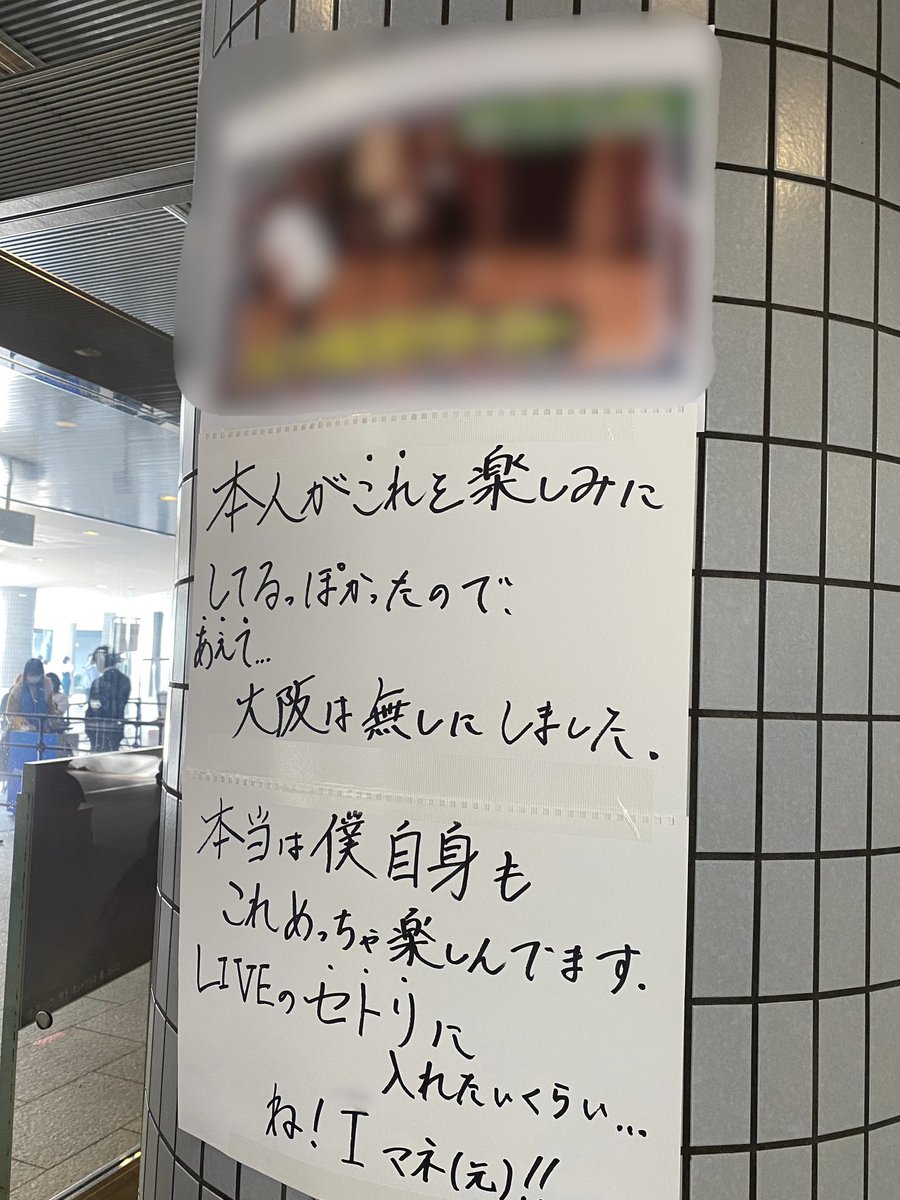 本人がこれを楽しみに
してるっぽかったので、
あえて…
大阪は無しにしました。
本当は僕自身も
これめっちゃ楽しんでます.
LIVEのセトリに
入れたいくらい…
ね! I マネ(元)!!